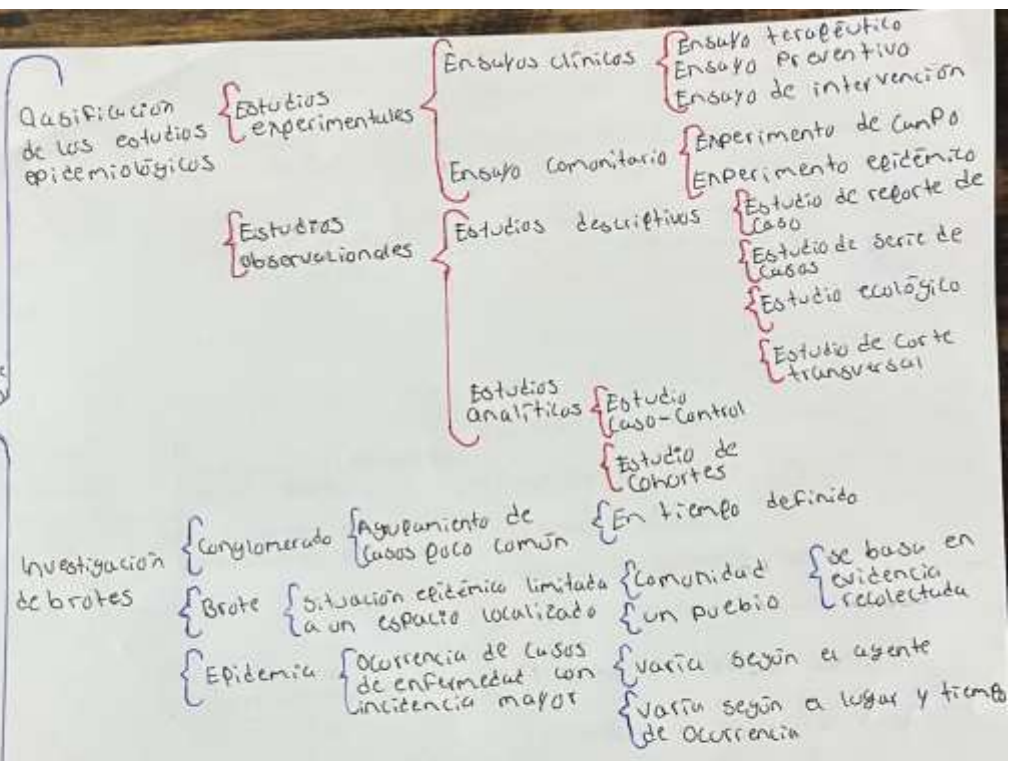 Clasificación
de los estudios
epidemiológicos
Estudios
experimentales
Ensayos clínicos
Ensayo terapéutico
Ensayo Preventivo
Ensayo de intervención
Ensayo comonitario
Experimento de CamPo
Experimento epidémico
Estudios
observacionales
Estudios descriptivos
Estudio de reporte de
Caso
Estudio de serie de
Casos
Estudio ecológico
Estudio de Corte
transversal
Estudios
analíticos
Estudio
Caso-Control
Estudio de
Cohortes
Investigación
de brotes
Conglomerado
Agupamiento de
Casos poco común
En tiempo definido
Brote
Situación epidémica limitada
a un espacio localizado
Comunidad
un pueblo
se basa en
evidencia
recolectada
Epidemia
Ocurrencia de casos
de enfermedad con
incidencia mayor
varia según el agente
varía según el lugar y tiempo
de ocurrencia